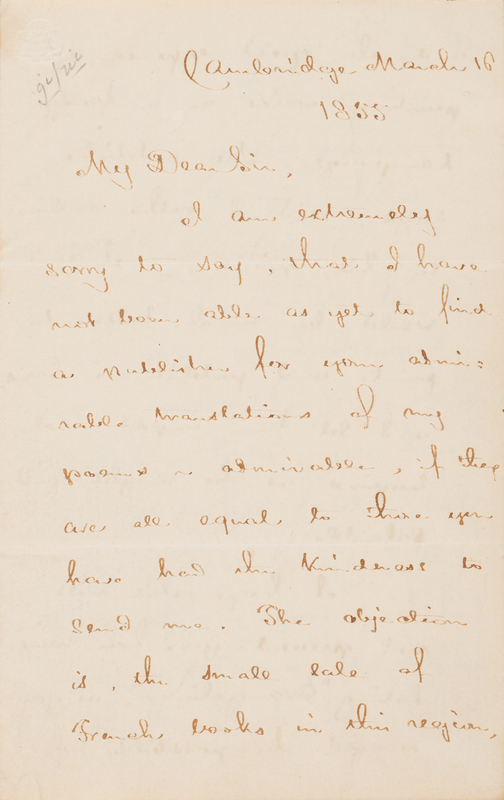 Cambridge March 16
1855
My Dear Sir,
I am extremely
sorry to say, that I have
not been able as yet to find
a publisher for your admi=
rable translations of my
poems admirable, if they
are all equal to those you
have had the kindness to
send me. The objection
is, the small sale of
French books in this region,